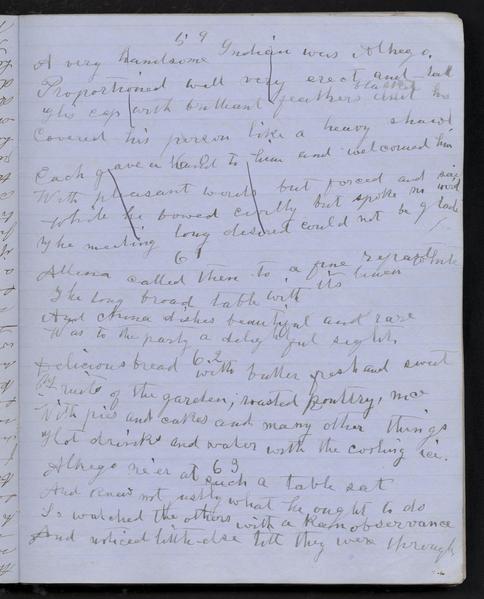 59
A very handsome Indian was Alhego.
Proportioned well very erect and tall
His cap with brilliant feathers and his blanket
Covered his person like a heavy shawl
60
Each gave a hand to him and welcomed him
With pleasant words but forced and said
While he bowed civilly but spoke no word
The meeting long desired could not be glad
61
Allena called them to a fine repast
The long broad table with its linen white
And China dishes beautiful and rare
Was to the party a delightful sight.
62
Delicious bread with butter fresh and sweet
Fruits of the garden, roasted poultry, nice
With pies and cakes and many other things
Hot drinks and water with the cooling ice.
63
Alhego ne'er at such a table sat
And knew not justly what he ought to do
So watched the others with a keen observance
And noticed little else till they were through